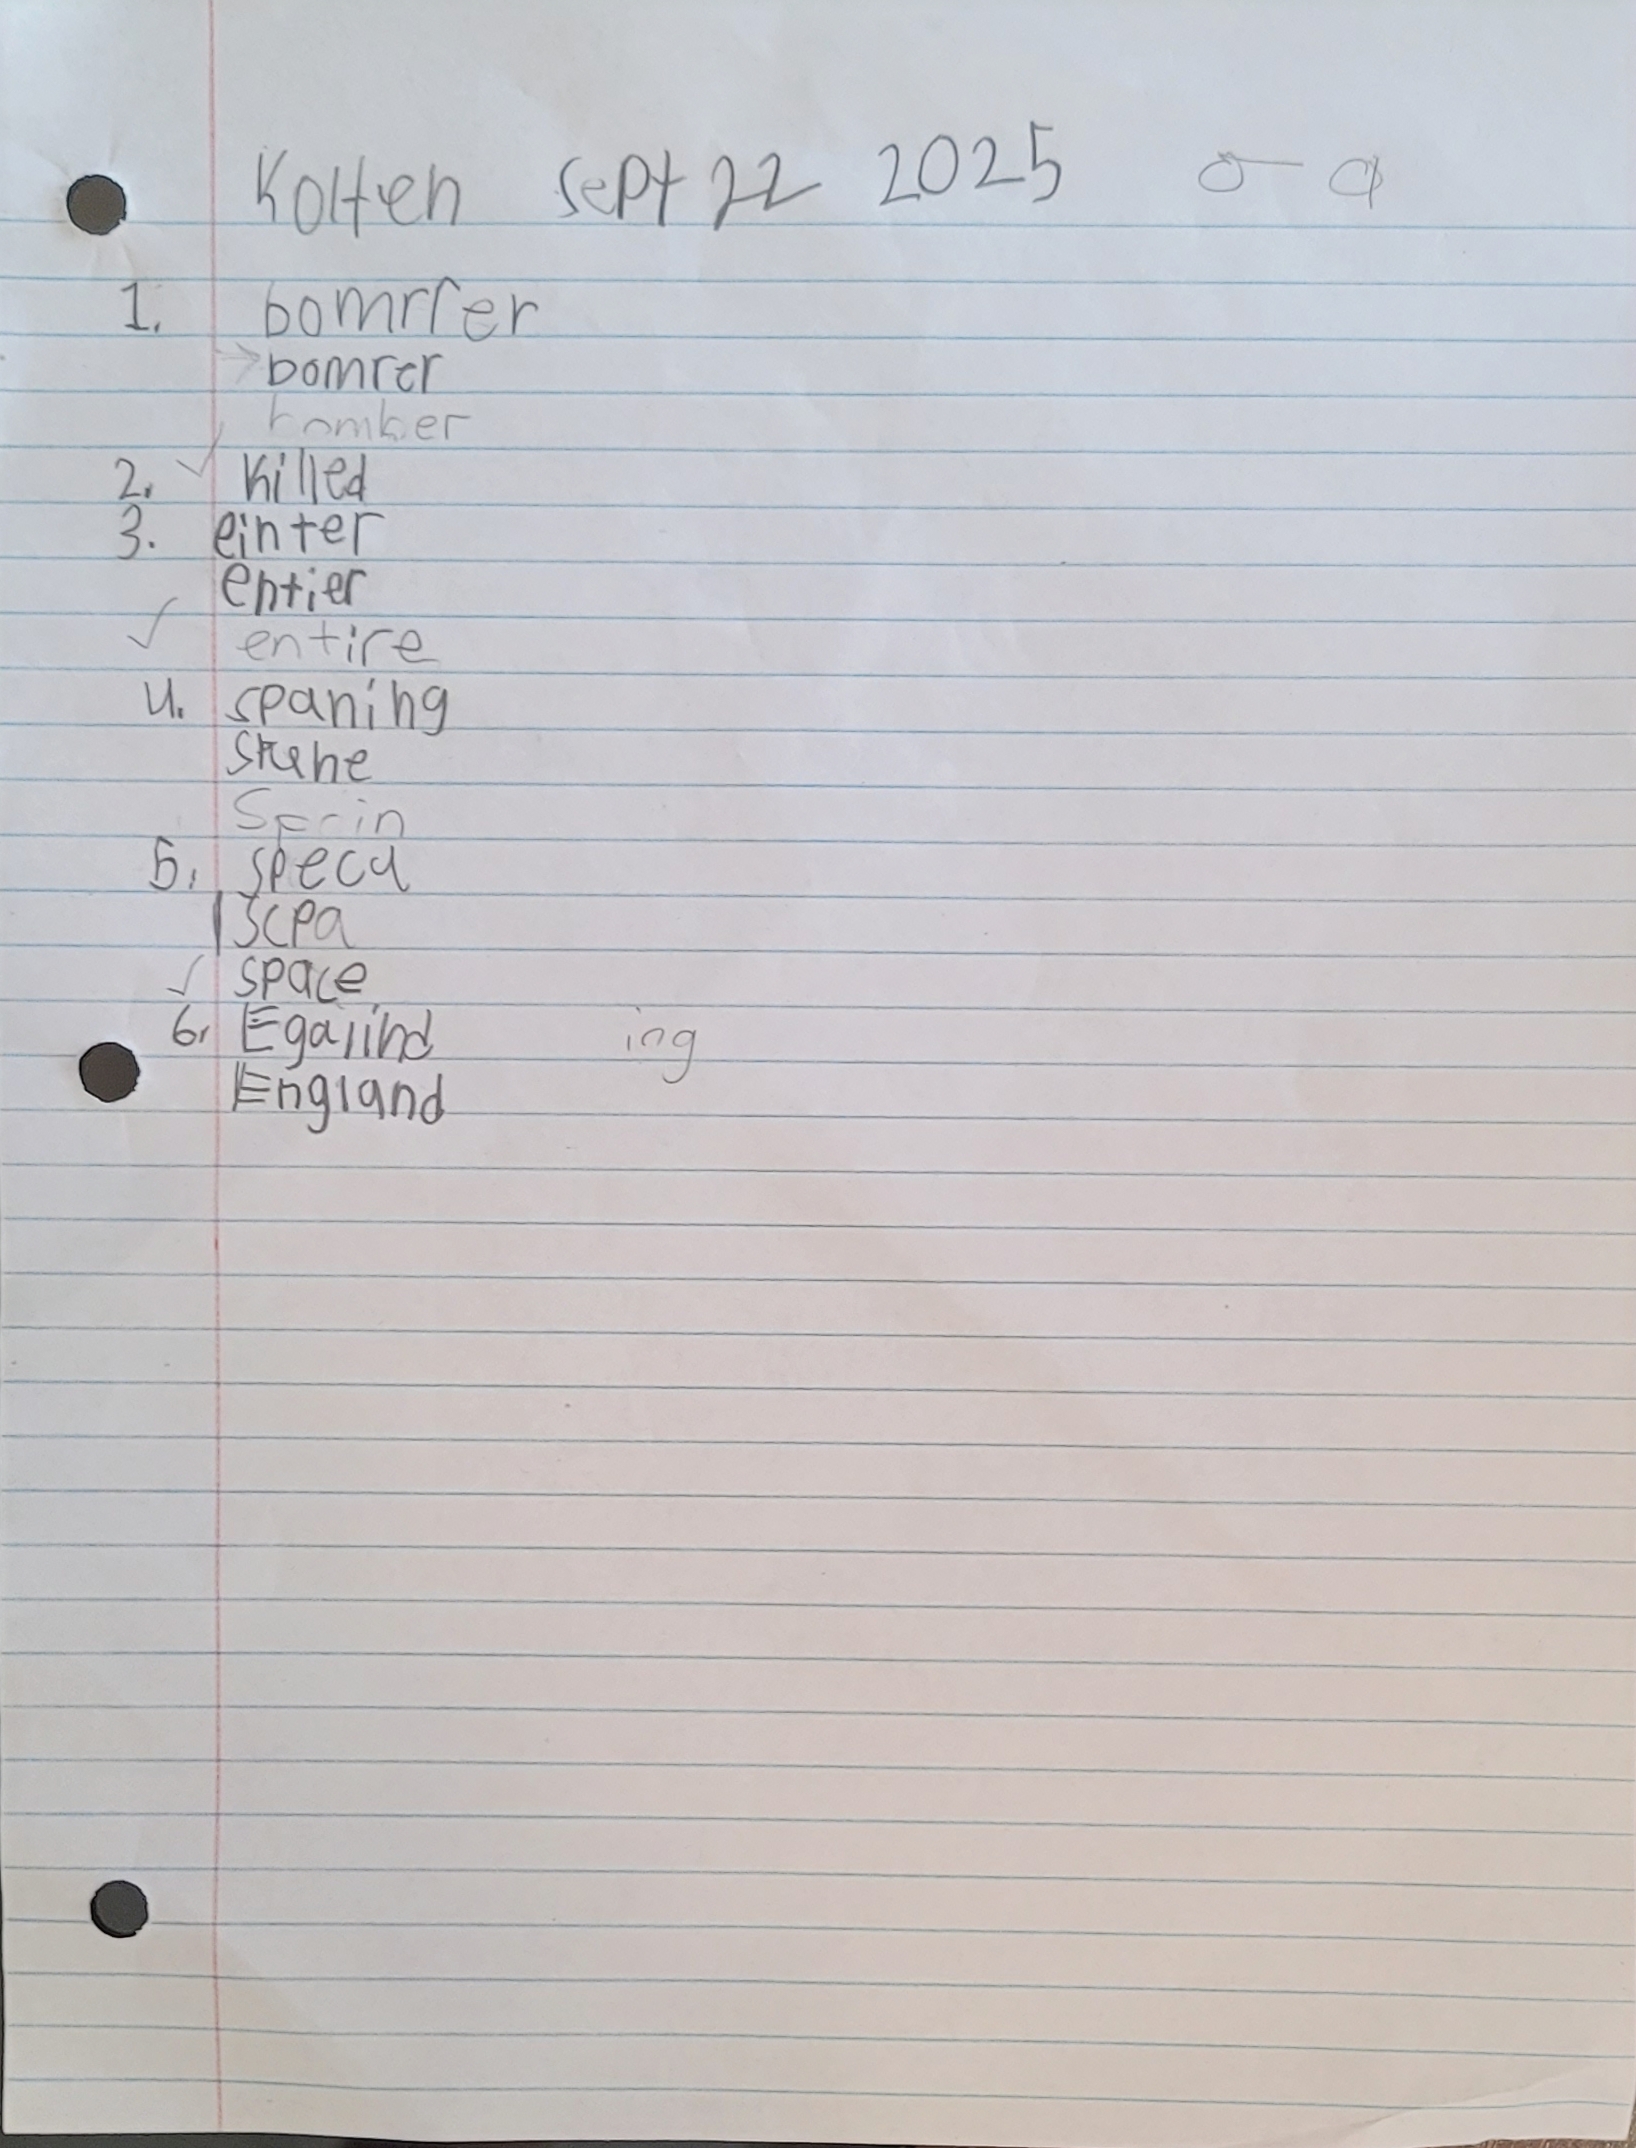 Kolten sept 22 2025
1. bomrrer
bomrer
bomber
2. killed
3. einter
entier
entire
4. spaning
Sprin
5. speca
scpa
space
6. Egalind ing
England